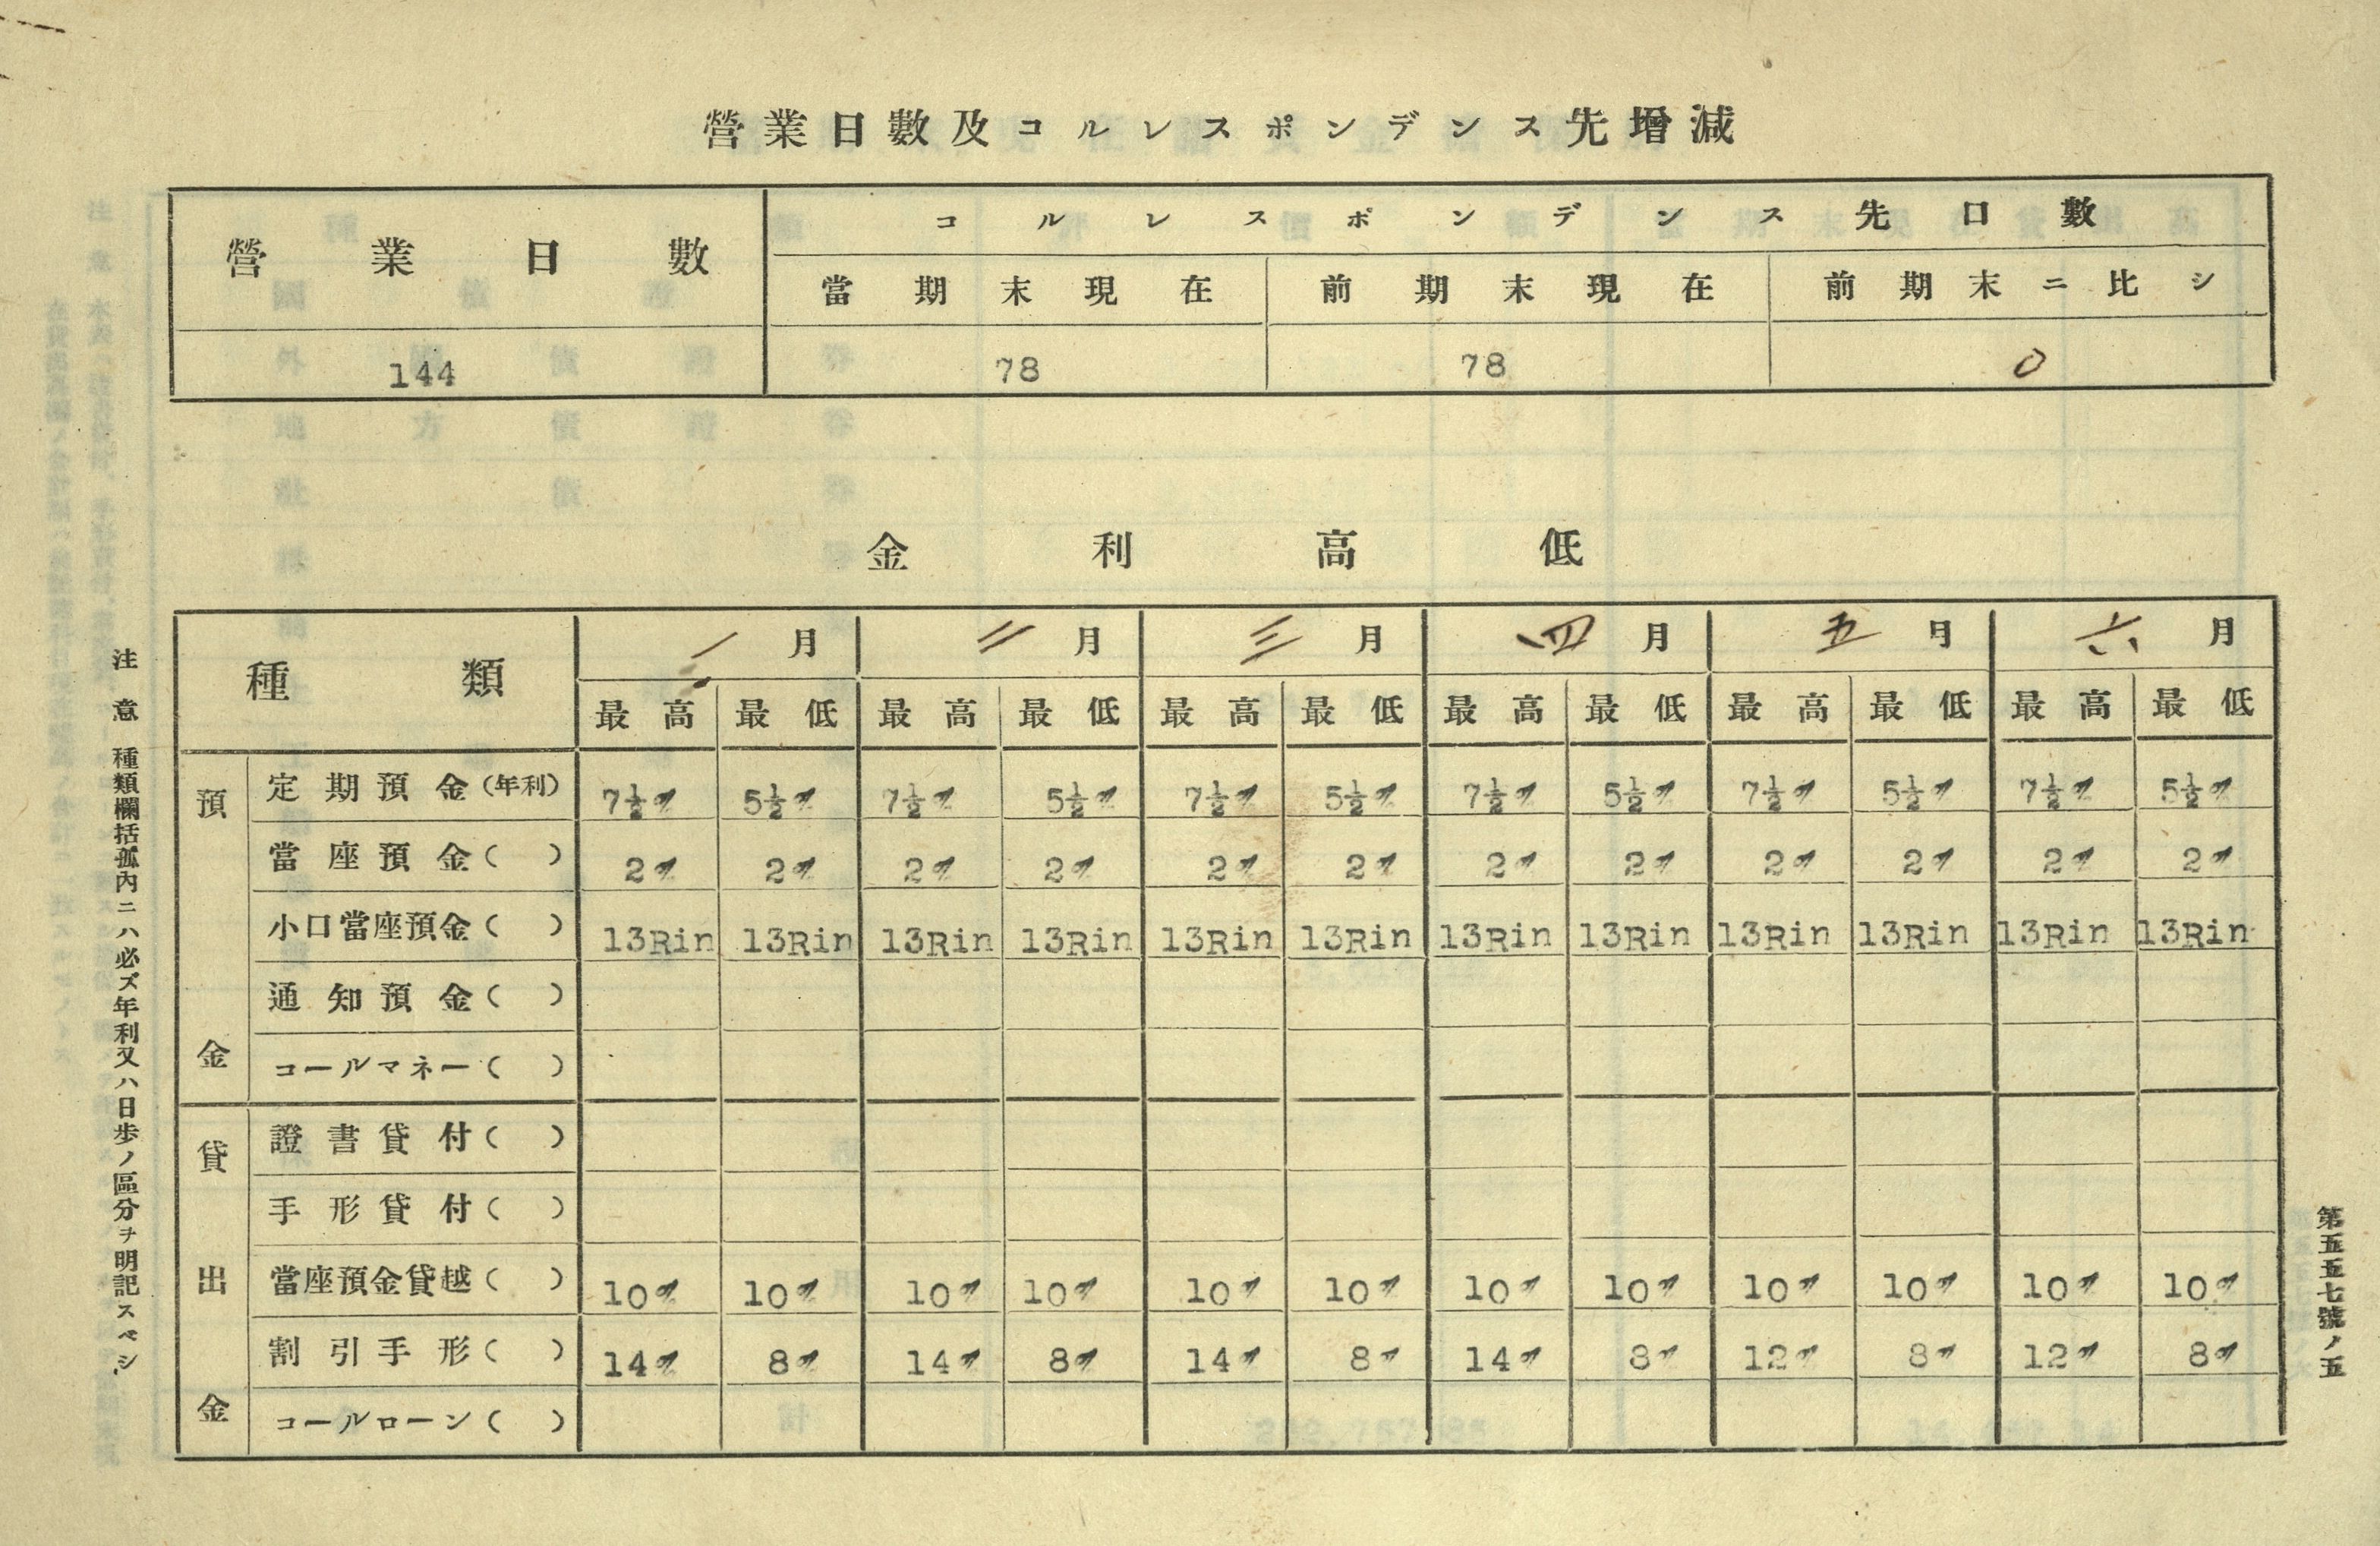 營業日數及コルレスポンデンス先增減
營業日數 コルレスポンデンス先口數
當期末現在 前期末現在 前期末ニ比シ
144 78 78 0
金利高低
種類 一月 二月 三月 四月 五月 六月
最高 最低 最高 最低 最高 最低 最高 最低 最高 最低 最高 最低
預金
定期預金(年利) 7½% 5½% 7½% 5½% 7½% 5½% 7½% 5½% 7½% 5½% 7½% 5½%
當座預金( ) 2% 2% 2% 2% 2% 2% 2% 2% 2% 2% 2% 2%
小口當座預金( ) 13Rin 13Rin 13Rin 13Rin 13Rin 13Rin 13Rin 13Rin 13Rin 13Rin 13Rin 13Rin
通知預金( )
コールマネー( )
貸出金
證書貸付( )
手形貸付( )
當座預金貸越( ) 10% 10% 10% 10% 10% 10% 10% 10% 10% 10% 10% 10%
割引手形( ) 14% 8% 14% 8% 14% 8% 14% 8% 12% 8% 12% 8%
コールローン( )
注意 種類欄括孤內ニハ必ズ年利又ハ日歩ノ區分ヲ明記スベシ
第五五五七號ノ五